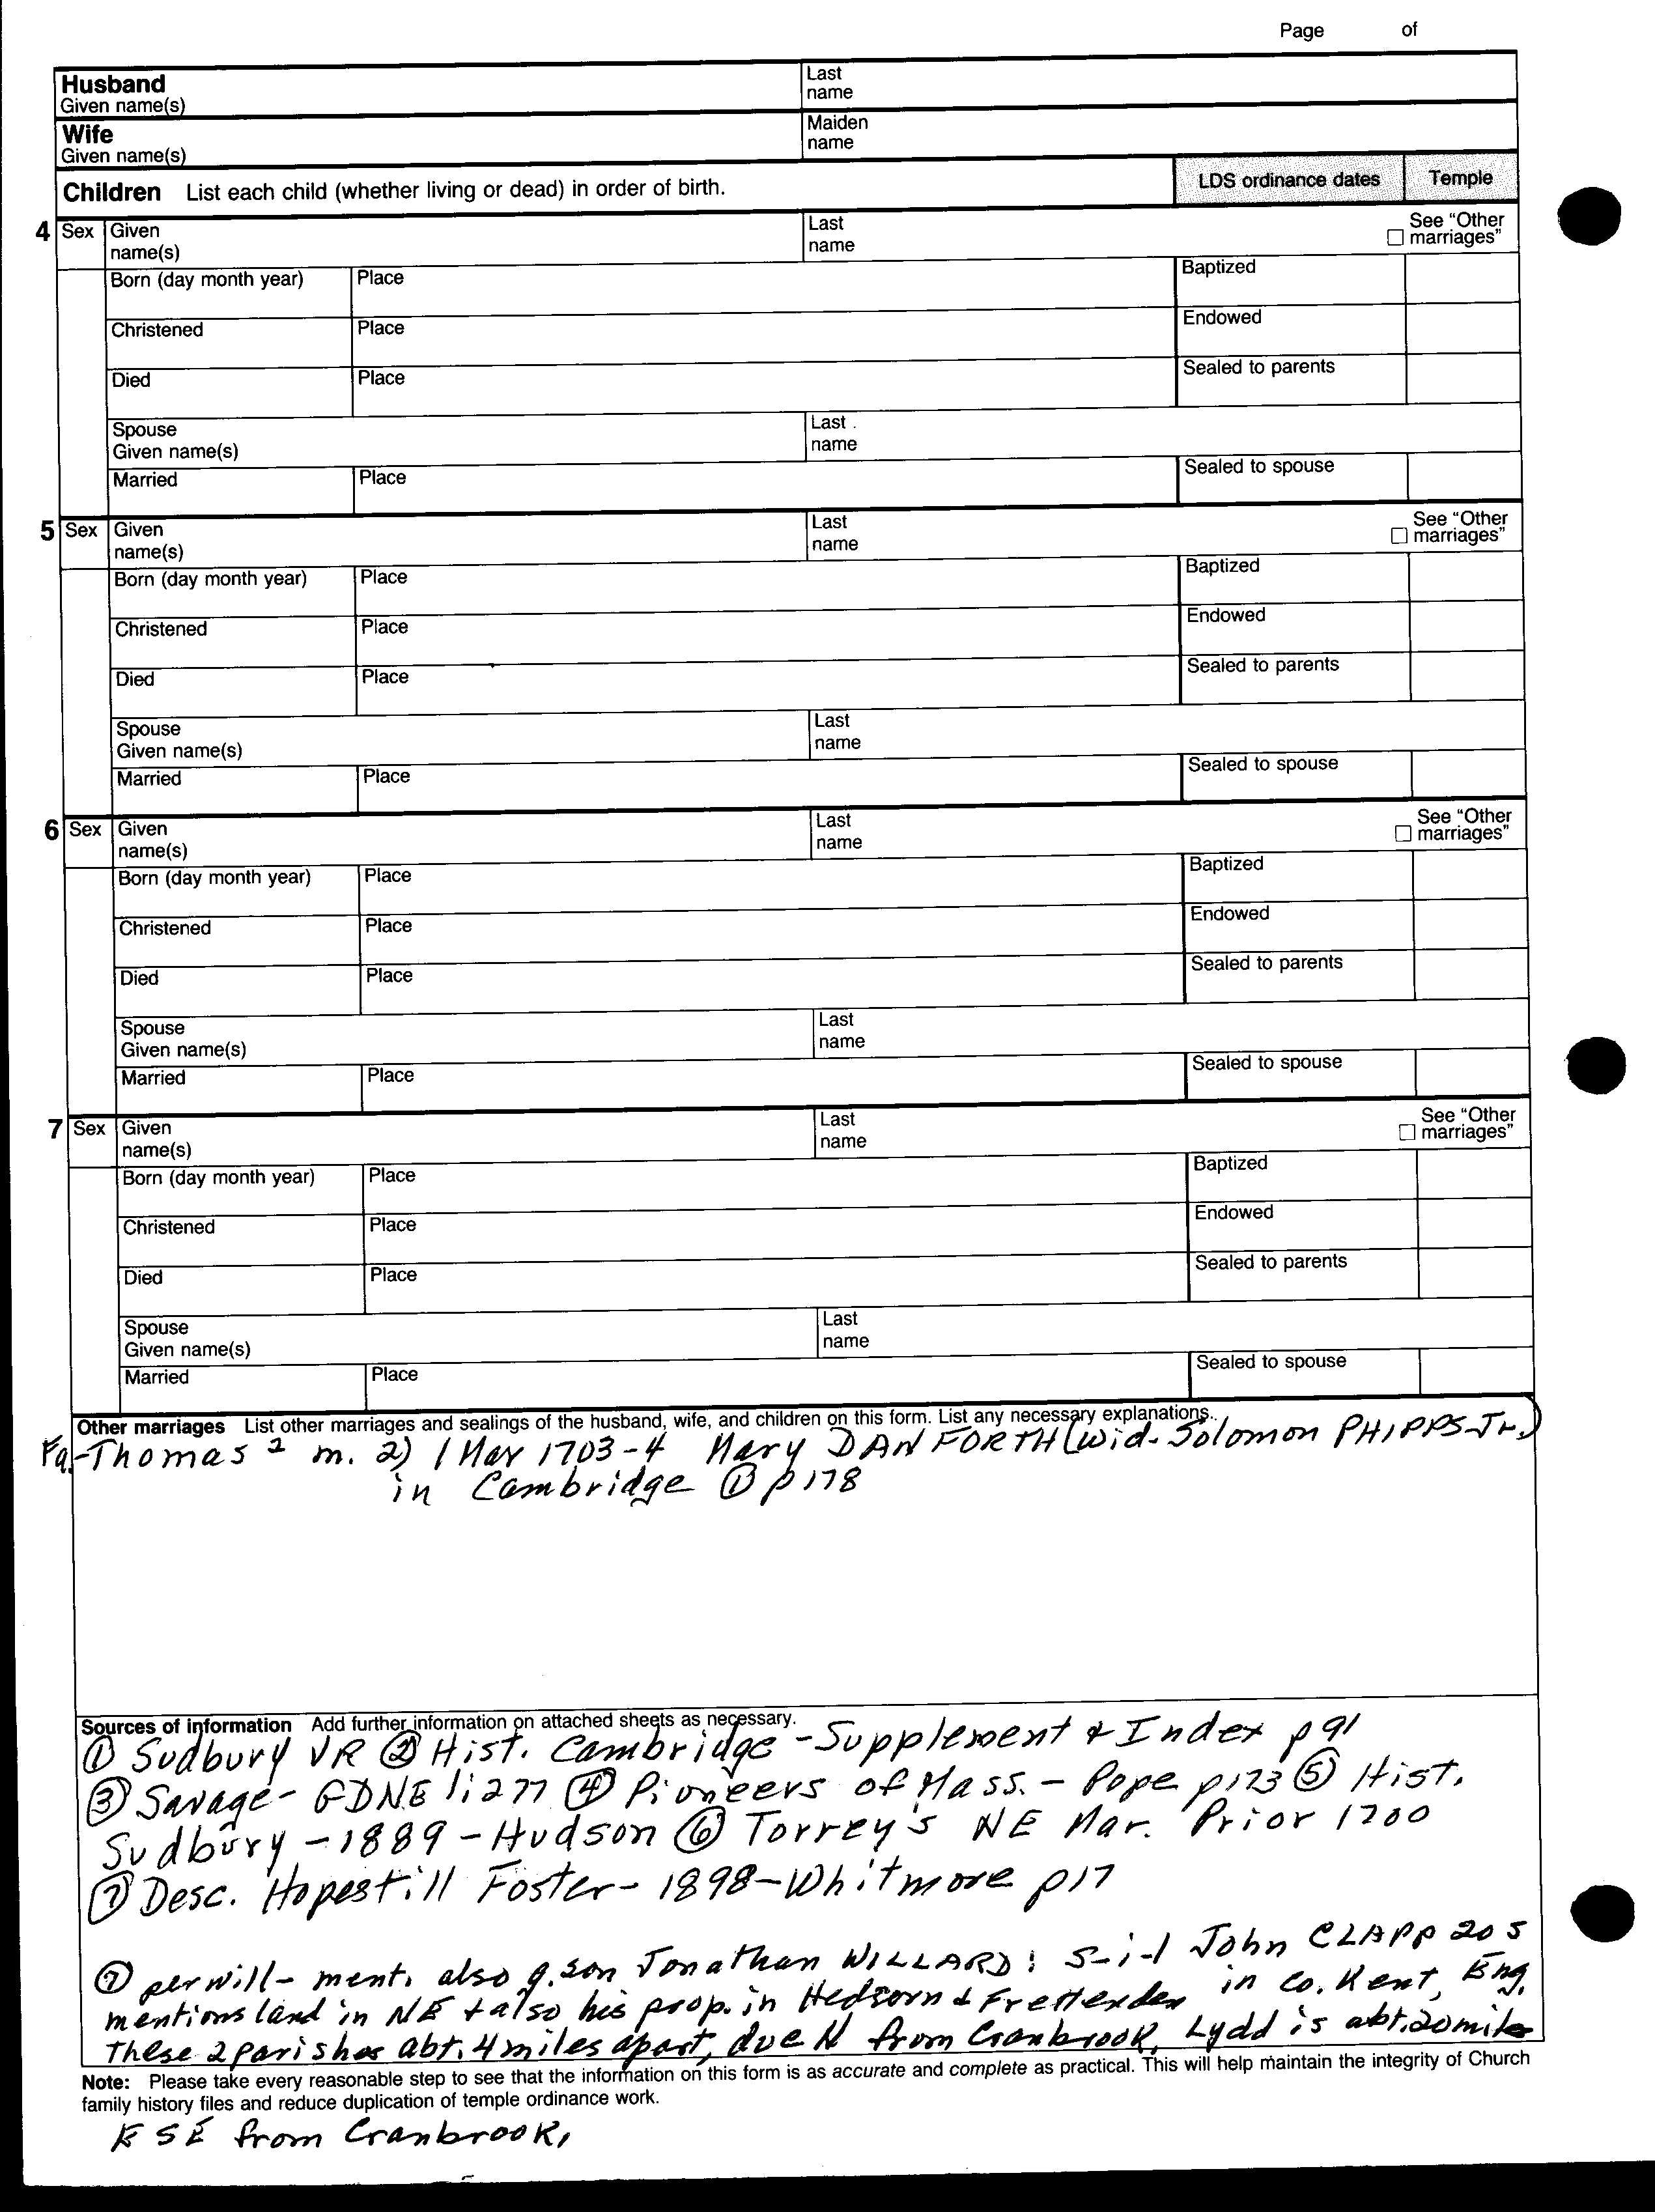 Page of
Husband
Given name(s)
Last
name
Wife
Given name(s)
Maiden
name
Children List each child (whether living or dead) in order of birth.
LDS ordinance dates Temple
4 Sex Given
name(s)
Last
name
See "Other
marriages"
Born (day month year) Place Baptized
Christened Place Endowed
Died Place Sealed to parents
Spouse
Given name(s)
Last
name
Married Place Sealed to spouse
5 Sex Given
name(s)
Last
name
See "Other
marriages"
Born (day month year) Place Baptized
Christened Place Endowed
Died Place Sealed to parents
Spouse
Given name(s)
Last
name
Married Place Sealed to spouse
6 Sex Given
name(s)
Last
name
See "Other
marriages"
Born (day month year) Place Baptized
Christened Place Endowed
Died Place Sealed to parents
Spouse
Given name(s)
Last
name
Married Place Sealed to spouse
7 Sex Given
name(s)
Last
name
See "Other
marriages"
Born (day month year) Place Baptized
Christened Place Endowed
Died Place Sealed to parents
Spouse
Given name(s)
Last
name
Married Place Sealed to spouse
Other marriages List other marriages and sealings of the husband, wife, and children on this form. List any necessary explanations.
Fa-Thomas ² m. 2) 1 Mar 1703-4 Mary DANFORTH (wid. Solomon PHIPPS-Jr.)
in Cambridge ① p178
Sources of information Add further information on attached sheets as necessary.
① Sudbury VR ② Hist. Cambridge - Supplement & Index p91
③ Savage - GDNE 1:277 ④ Pioneers of Mass. - Pope p173 ⑤ Hist.
Sudbury - 1889 - Hudson ⑥ Torrey's NE Mar. Prior 1700
⑦ Desc. Hopestill Foster - 1898 - Whitmore p17
⑦ per will - ment. also g.son Jonathan WILLARD; S-i-l John CLAPP 20 s
mentions land in NE + also his prop. in Hedcorn & Frettenden in Co. Kent, Eng.
These 2 parishes abt. 4 miles apart, due N from Cranbrook, Lydd is abt. 20 miles
Note: Please take every reasonable step to see that the information on this form is as accurate and complete as practical. This will help maintain the integrity of Church
family history files and reduce duplication of temple ordinance work.
ESE from Cranbrook,